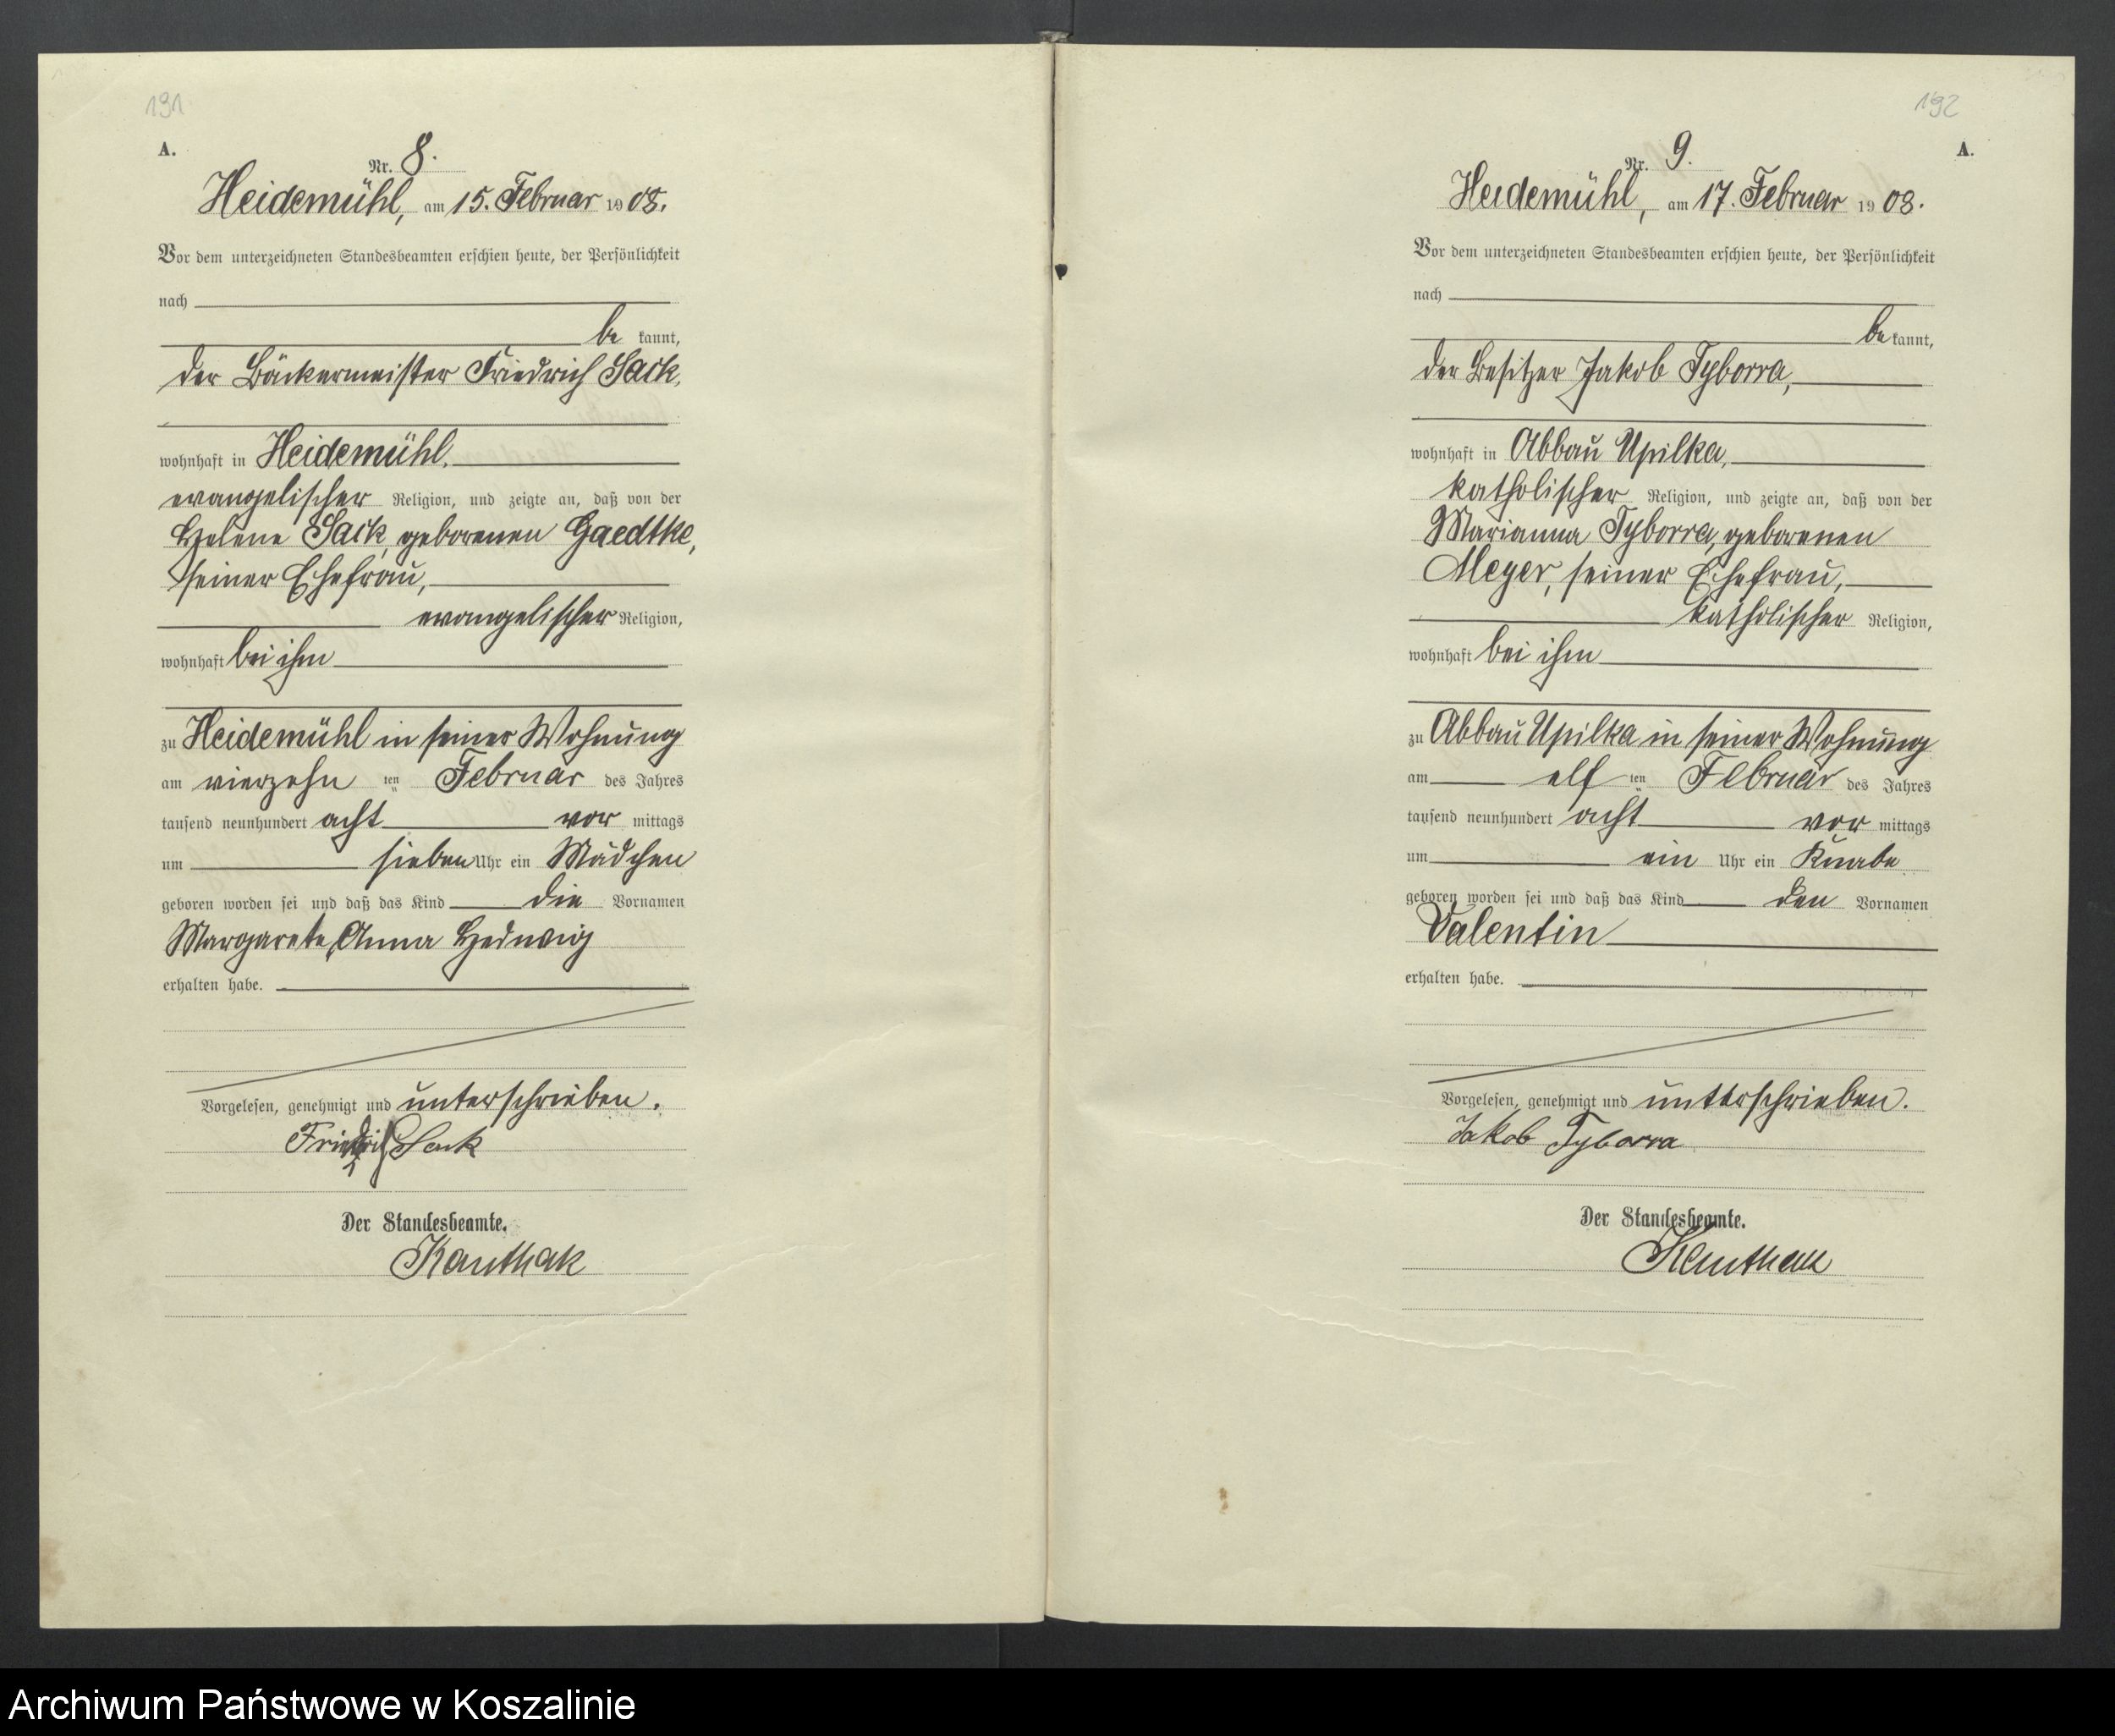 191
A.
Nr. 8.
Heidemühl, am 15. Februar 1908.
Vor dem unterzeichneten Standesbeamten erschien heute, der Persönlichkeit
nach
be kannt,
der Bäckermeister Friedrich Sack,
wohnhaft in Heidemühl,
evangelischer Religion, und zeigte an, daß von der
Helene Sack, geborenen Gaedtke,
seiner Ehefrau,
evangelischer Religion,
wohnhaft bei ihm
zu Heidemühl in seiner Wohnung
am vierzehn ten Februar des Jahres
tausend neunhundert acht vor mittags
um sieben Uhr ein Mädchen
geboren worden sei und daß das Kind die Vornamen
Margarete, Anna Hedwig
erhalten habe.
Vorgelesen, genehmigt und unterschrieben.
Friedrich Sack
Der Standesbeamte.
Kauthak
192
A.
Nr. 9.
Heidemühl, am 17. Februar 1908.
Vor dem unterzeichneten Standesbeamten erschien heute, der Persönlichkeit
nach
be kannt,
der Besitzer Jakob Tyborra,
wohnhaft in Abbau Upilka,
katholischer Religion, und zeigte an, daß von der
Marianna Tyborra, geborenen
Meyer, seiner Ehefrau,
katholischer Religion,
wohnhaft bei ihm
zu Abbau Upilka in seiner Wohnung
am elf ten Februar des Jahres
tausend neunhundert acht vor mittags
um ein Uhr ein Knabe
geboren worden sei und daß das Kind den Vornamen
Valentin
erhalten habe.
Vorgelesen, genehmigt und unterschrieben.
Jakob Tyborra
Der Standesbeamte.
Kauthak
Archiwum Państwowe w Koszalinie